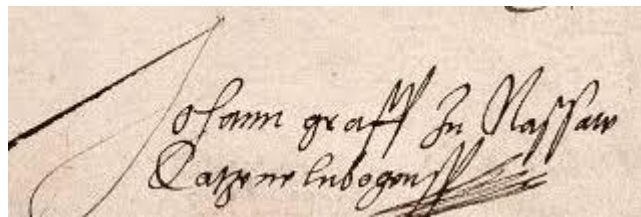 Johann graff Zu Nassaw
Catzenelnbogenn